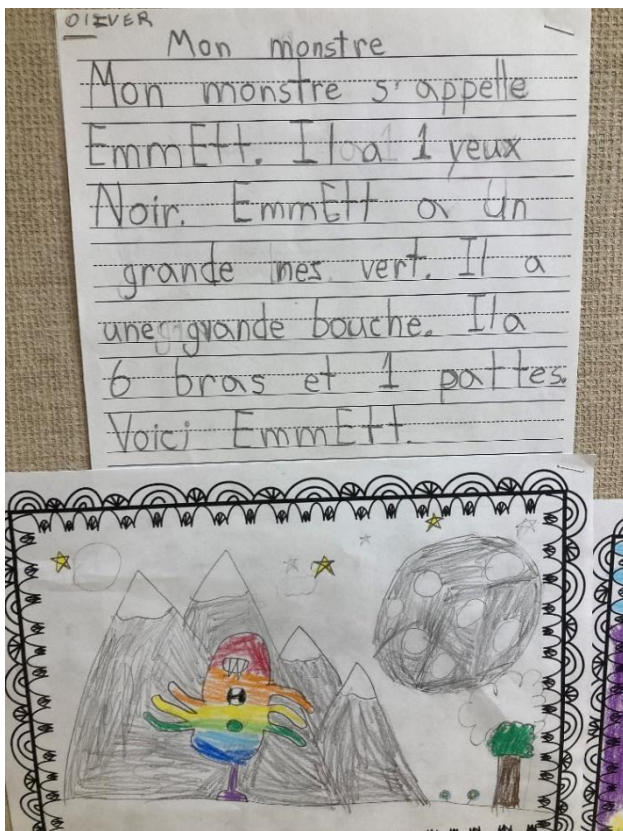 OlIVER
Mon monstre
Mon monstre s'appelle
EmmEtt. Il a 1 yeux
Noir. EmmEtt a un
grande nes vert. Il a
une grande bouche. Il a
6 bras et 1 pattes.
Voici EmmEtt.